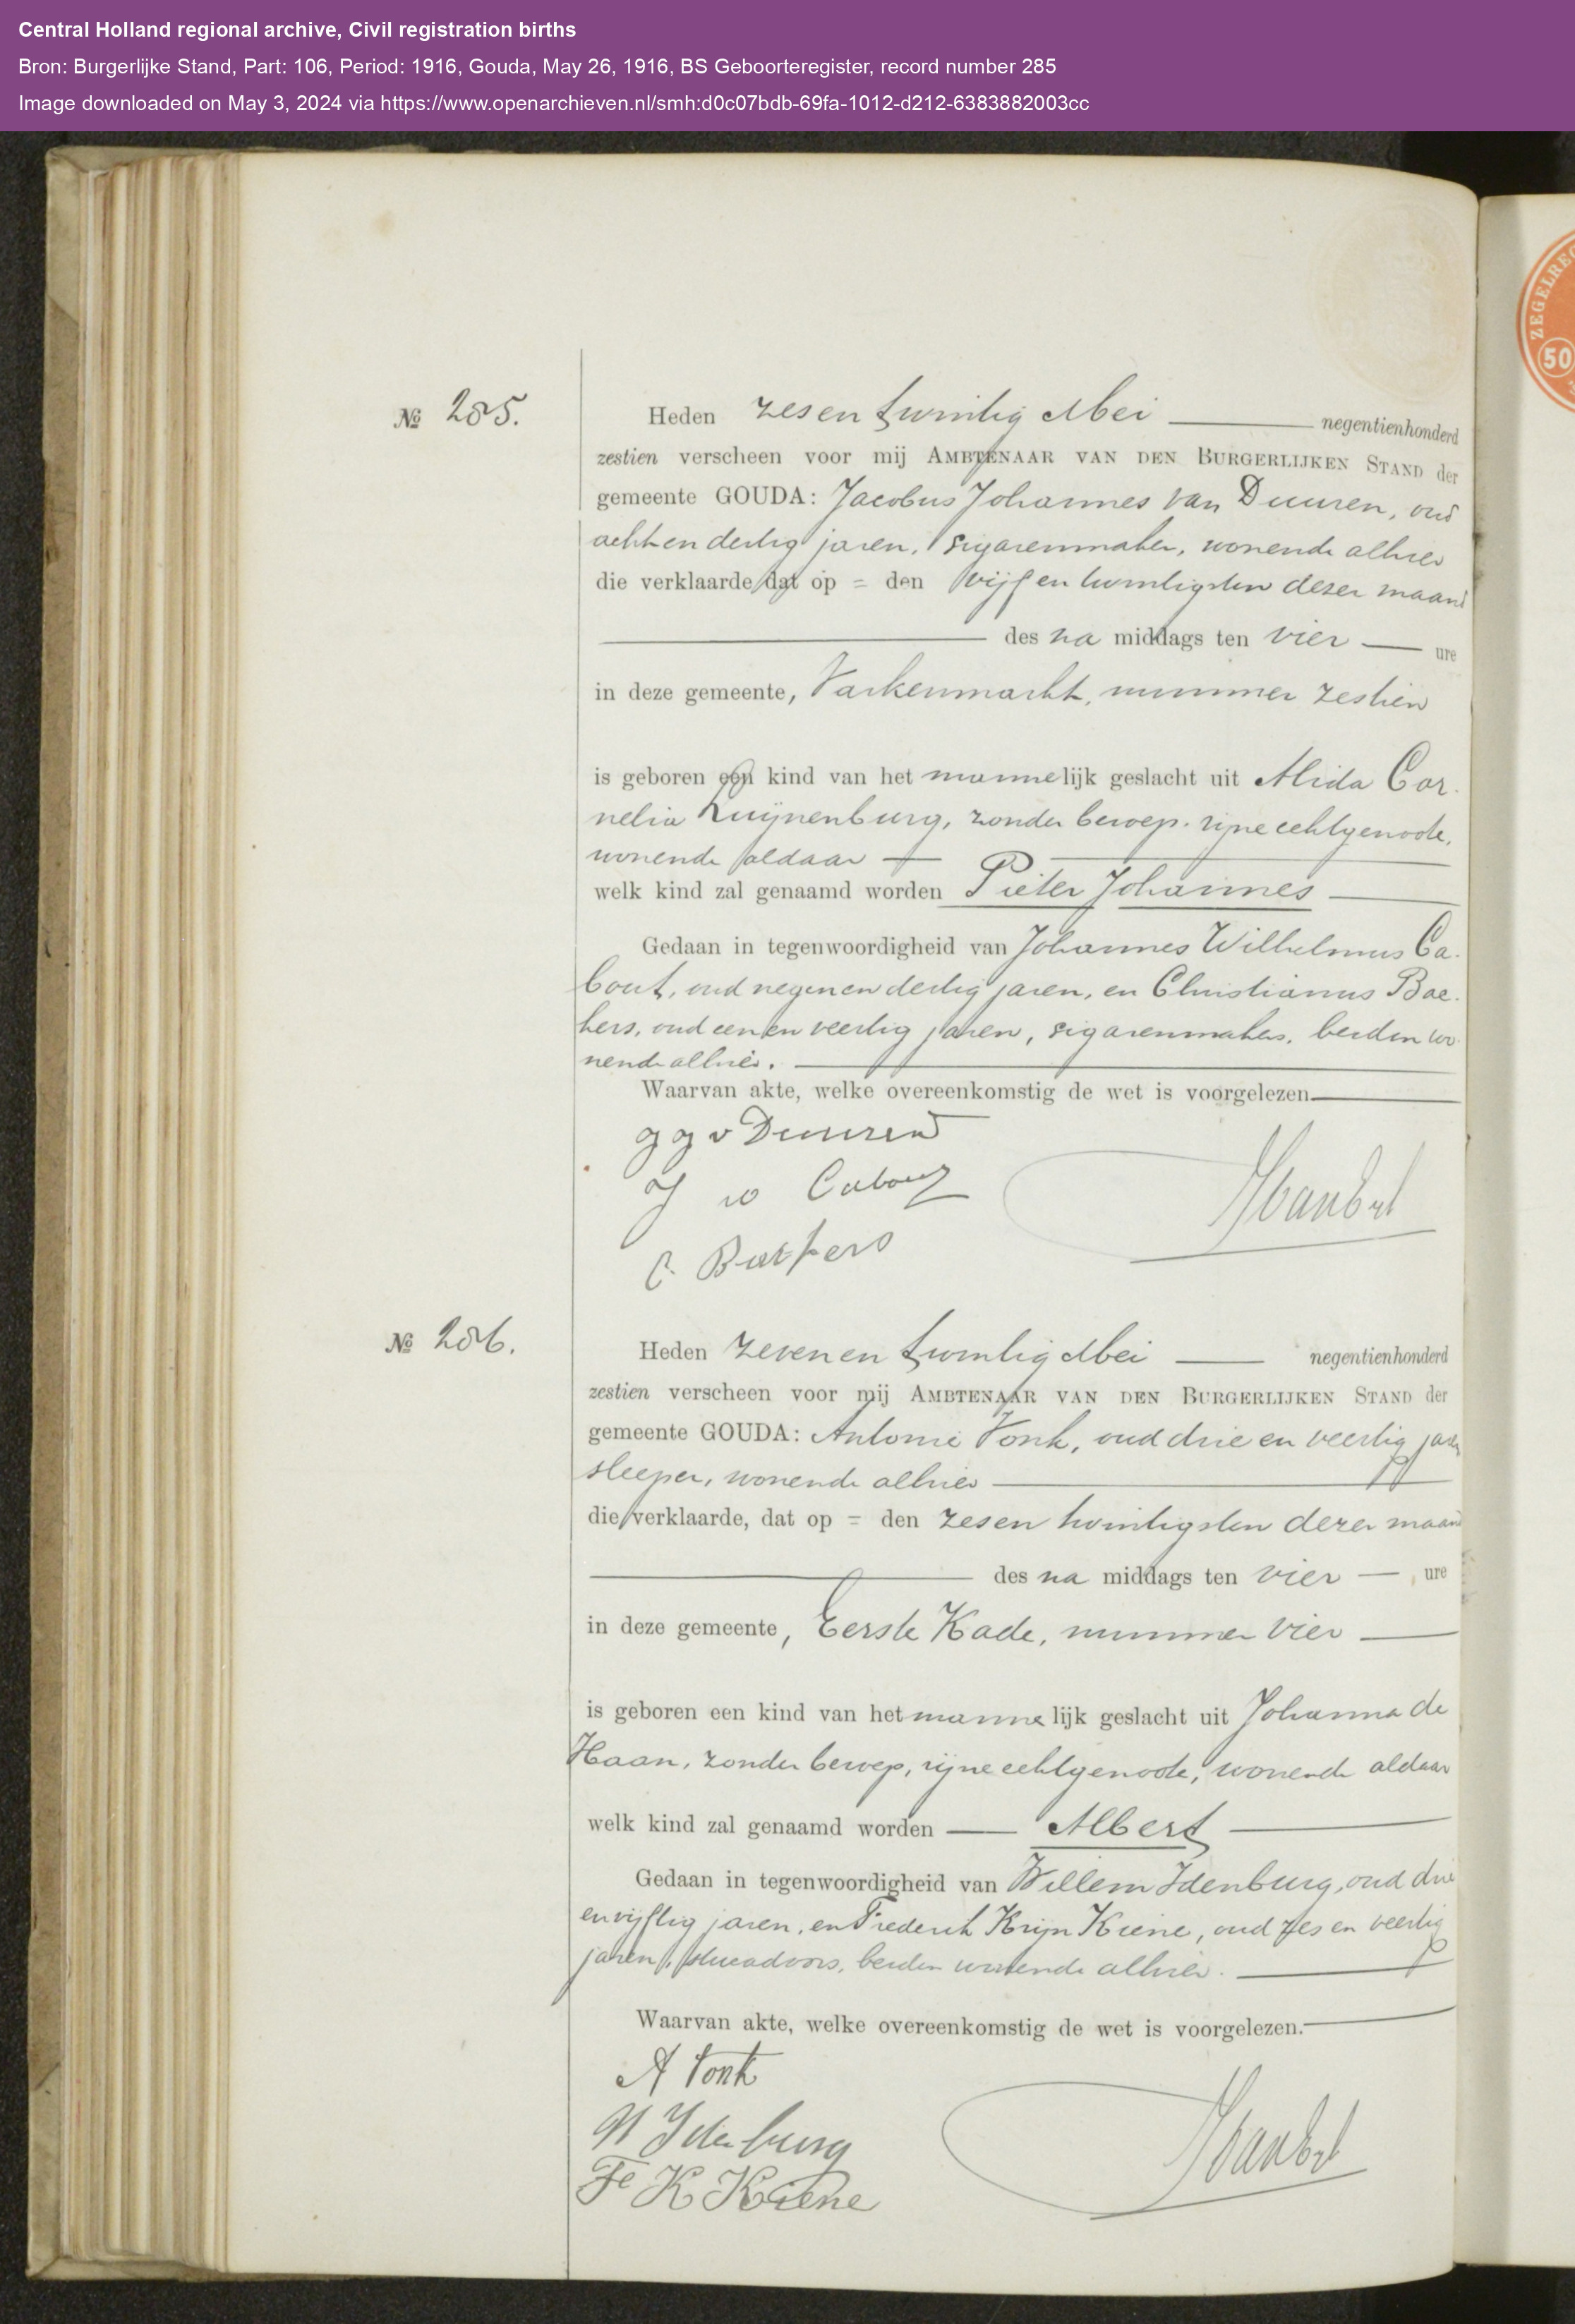 Central Holland regional archive, Civil registration births
Bron: Burgerlijke Stand, Part: 106, Period: 1916, Gouda, May 26, 1916, BS Geboorteregister, record number 285
Image downloaded on May 3, 2024 via https://www.openarchieven.nl/smh:d0c07bdb-69fa-1012-d212-6383882003cc
ZEGELRE
50
№ 285.
Heden zesentwintig Mei negentienhonderd
zestien verscheen voor mij AMBTENAAR VAN DEN BURGERLIJKEN STAND der
gemeente GOUDA: Jacobus Johannes van Duuren, oud
achtendertig jaren, sigarenmaker, wonende alhier
die verklaarde dat op = den vijfentwintigsten dezer maand
des na middags ten vier ure
in deze gemeente, Varkenmarkt, nummer zestien
is geboren een kind van het mannelijk geslacht uit Alida Cor
nelia Luijnenburg, zonder beroep, zijne echtgenoote,
wonende aldaar
welk kind zal genaamd worden Pieter Johannes
Gedaan in tegenwoordigheid van Johannes Wilhelmus Ca
bout, oud negenendertig jaren, en Christianus Bae
kers, oud eenenveertig jaren, sigarenmakers, beiden wo
nende alhier.
Waarvan akte, welke overeenkomstig de wet is voorgelezen
J J v Duuren
J W Cabout
C. Baekers
№ 286.
Heden zevenentwintig Mei negentienhonderd
zestien verscheen voor mij AMBTENAAR VAN DEN BURGERLIJKEN STAND der
gemeente GOUDA: Antonie Vonk, oud drieenveertig jaren
sleeper, wonende alhier
die verklaarde, dat op = den zesentwintigsten dezer maand
des na middags ten vier ure
in deze gemeente, Eerste Kade, nummer vier
is geboren een kind van het mannelijk geslacht uit Johanna de
Haan, zonder beroep, zijne echtgenoote, wonende aldaar
welk kind zal genaamd worden Albert
Gedaan in tegenwoordigheid van Willem IJdenburg, oud drie
envijftig jaren, en Frederik Krijn Kiene, oud zesenveertig
jaren, stucadoors, beiden wonende alhier.
Waarvan akte, welke overeenkomstig de wet is voorgelezen.
A Vonk
W IJdenburg
Fe K Kiene